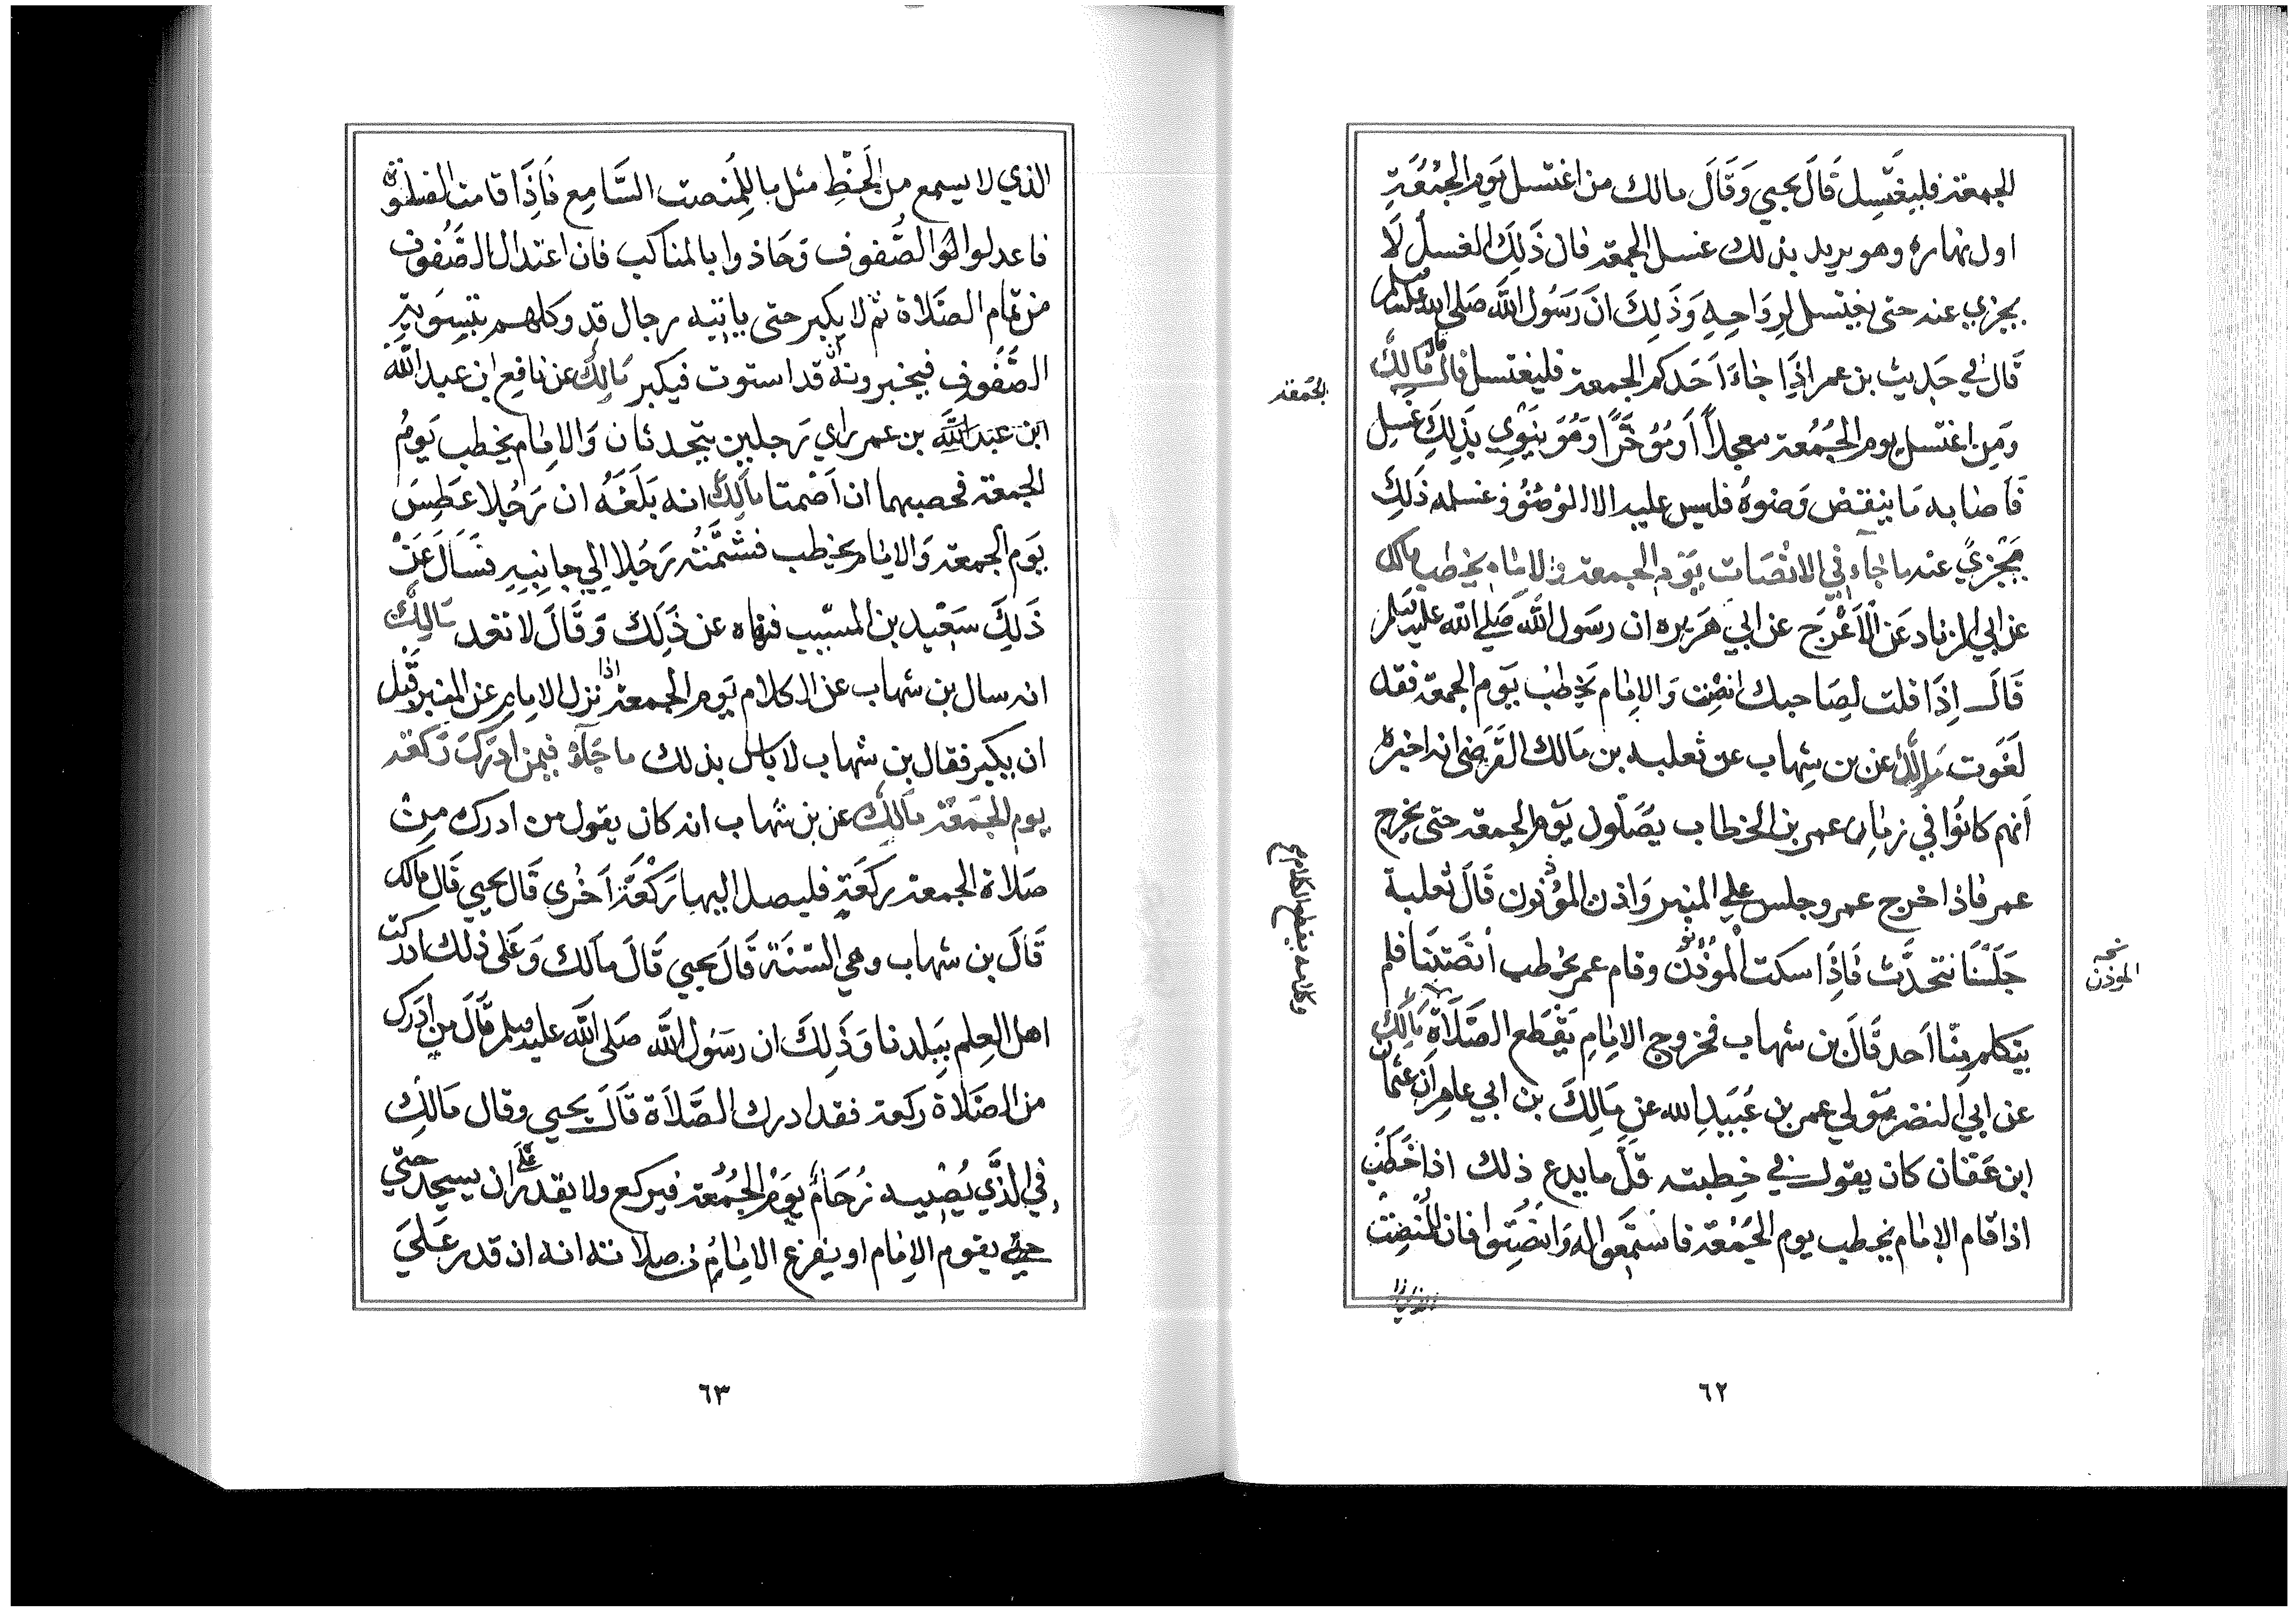 الجمعة فليغتسل قَالَ يحيي وَقَالَ مالك من اغتسل يَوم الجُمُعَةِ
اول نهاره وهو يريد بذلك غسل الجمعة فان ذَلِكَ الغسل لَا
يجزي عنه حتى يغتسل لِروَاحِهِ وَذَلِكَ انَ رَسُول اللَّه صَلى الله عليه وسلم
قَال في حَدِيث بن عمر اذَا جَاءَ اَحَدكم الجمعة فليغتسل قال مَالِكٌ
الجُمعَة
وَمِن اغتسل يوم الجُمُعة معجلاً اَو مُؤخَّرًا وَهُوَ يَنْوِي بذَلِكَ غسل
فَاَصَابه مَا ينقض وَضوءُه فليس عليه الا الوُضُوُ وغسله ذَلِكَ
مَجْزِيً عنه ما جَاء في الانْصَات يَوم الجمعة والامام يخطب مالك
عن ابي الزناد عَن الاَعْرَج عن ابي هَريره ان رسَول اللَّه صَلي الله عليه وسلم
قَالَ اِذَا قلت لصَاحبك انصِت وَالاِمَام يَخطبُ يَوم الجمعة فقد
لَغَوت مَالِكٌ عن بن شِهاب عن ثعلبه بن مَالك القَرَضى انه اخبره
اَنهم كانُوا في زمَان عمر بن الخطاب يُصَلّون يَوم الجمعة حتى يخرج
عمر فاذا خرج عمر وجلس علي المنبر وَاذن المؤذنون قَالَ ثعلبة
جَلَسْنَا نتحدَّث فَاِذَا سكت المُؤذن وقام عمر يخطب اَنصَتنَا فلم
نسخة
الموذن
يتكلم مِنَّا اَحد قَالَ بن شهاب فخروج الاِمَامِ يَقْطَع الصَّلَاةَ مَالِكٌ
وكلامه يقطع الكلام
عن ابي النضر مَولي عمر بن عُبَيَد الله عن مَالِكَ بن ابي عامر اَن عثمان
ابن عَفان كان يقول في خِطبته قَلَّ ما يدع ذلك اذا خَطَب
اذا قام الاِمَام يخطب يوم الجُمْعَة فاستمِعوا له وَانصتوا فان للمُنصِت
٦٢
الذي لا يسمع من الحَظِ مثل ما للمُنصت السَّامِع فَاِذَا قامت الصلوة
فاعدلوا الصُّفوف وَحَاذوا بالمناكب فان اعتدال الصُّفُوف
من تمام الصَلاة ثم لا يكبر حتى ياتيه رجال قد وكلهم بتسوية
الصُّفُوف فيخبرونه ان قد استوت فيكبر مَالِكٌ عن نافع ان عبد اللَّه
ابن عَبْد اللَّه بن عمر راي رَجلين يتحدثان وَالامَام يخطب يَومَ
الجمعة فحصبهما ان اَصْمتا مَالِكٌ انه بَلَغَهُ ان رَجُلا عَطسَ
يَوم الجمعة وَالامَام يخطب فشَمَّتْه رَجُلا اِلي جانِبه فسَاَلَ عَنْ
ذَلِكَ سَعْيد بن المسَّيب فنهاه عن ذَلِكَ وَقَالَ لا تعد مَالِكٌ
انه سال بن شهاب عن الكلام يَوم الجمعة اذا نزل الامام عن المنبر قبل
ان يكبر فقال بن شهاب لا باس بذلك ما جَاءَ فيمن ادرَكَ رَكعَة
يوم الجُمعَة مَالِكٌ عن بن شهاب انه كان يقول من ادرك مِنْ
صَلاة الجمعة ركعَةٍ فليصل اليها رَكْعَةً اَخُرى قَال يحيي قَال مالك
قَالَ بن شهاب وهي السّنَة قَالَ يحيي قَالَ مَالك وَعَلى ذلك ادركت
اهل العِلم ببَلدنا وَذَلِكَ ان رسَوُل اللَّه صَلى اللَّه عليه وسلم قَالَ من اَدرَك
من الصَلاة ركعة فقد ادرك الصَّلاَة قَالَ يحيي وقال مَالكٌ
في الذَّي يُصيبه زحَامٌ يَوم الجُمُعَة فيركع ولا يقدر علي ان يسجد حتَي
حتي يقوم الاِمَام او يفرغ الامَامُ من صلاته انه ان قدر عَلَيَ
٦٣